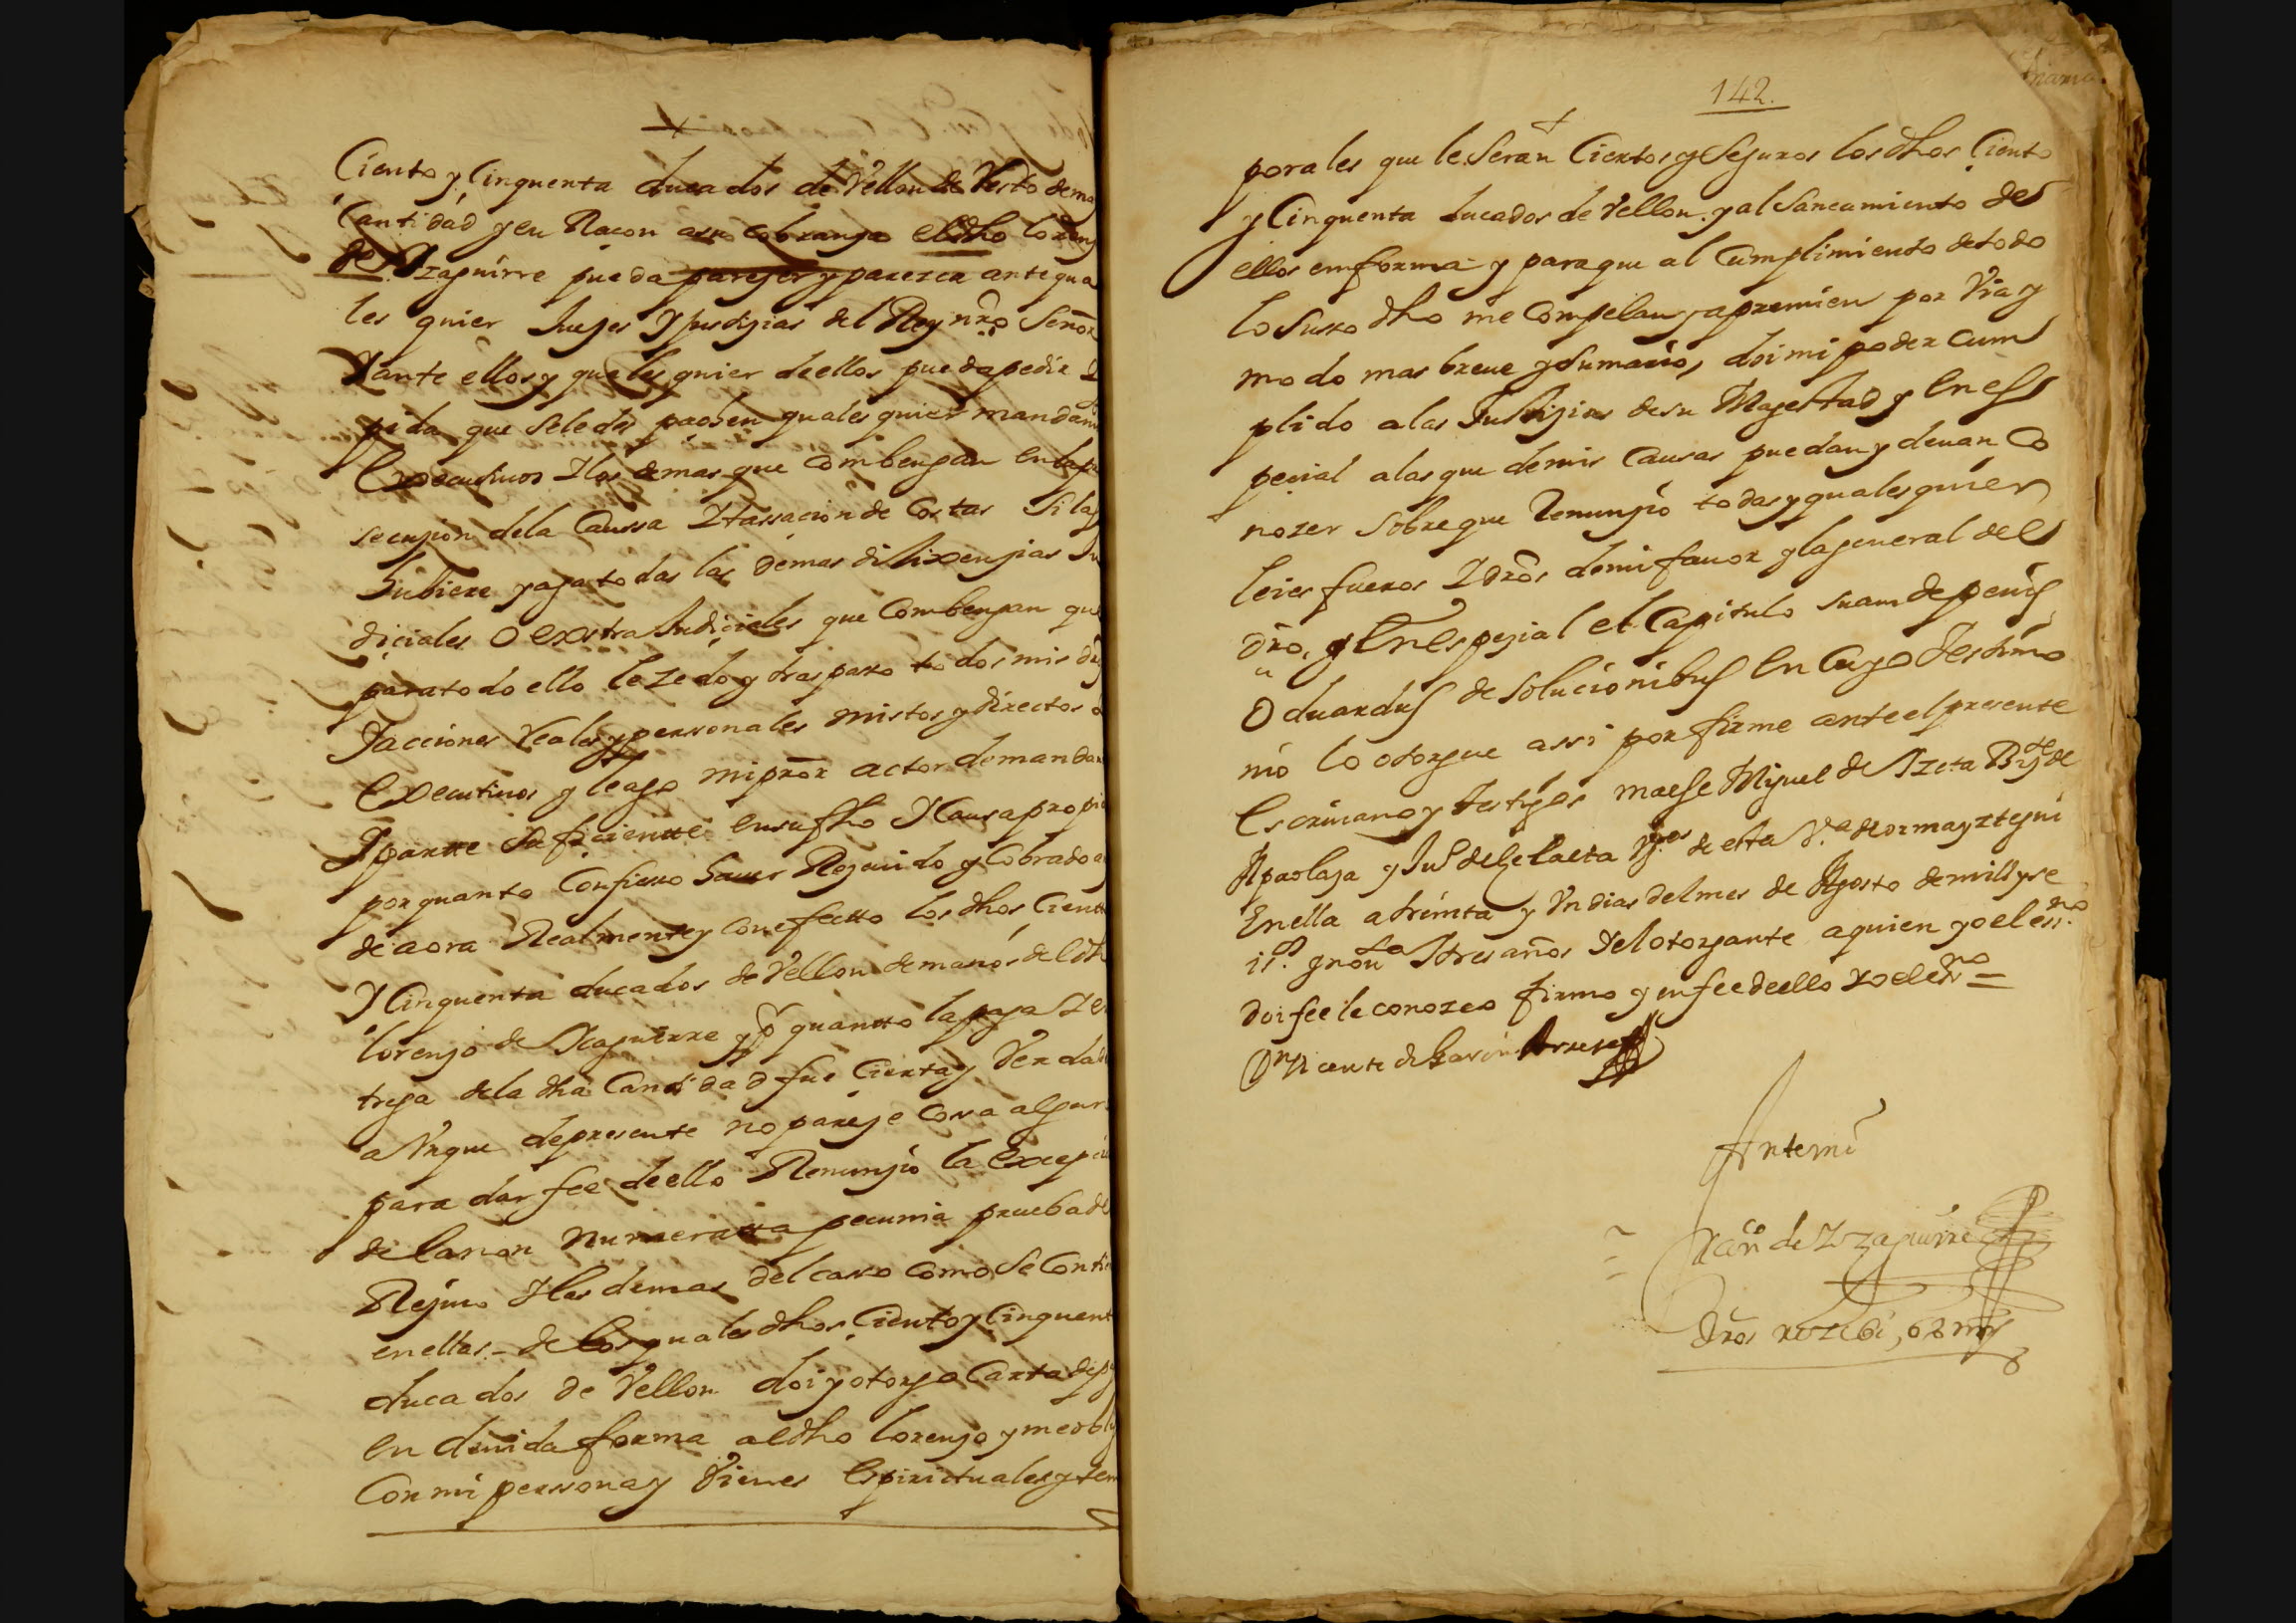 Ciento y Cinquenta ducados de Vellon de Resto de ma
Cantidad y en Raçon a su cobrança el dho Lorenç
de Yzaguirre pueda pareçer y parezca ante qua
les quier Jueçes y Justiçias del Rey nro Señor
Y ante ellos y quales quier de ellos pueda pedir y
pida que se le den quales quier mandam
Executivos y los demas que Combengan en la pro
secuçion de la Caussa y tassacion de Costas si las
hubiere y aga todas las demas dilixençias Ju
diciales o extra Judiçiales que Combengan que
para todo ello le zedo y traspaso todos mis drs
Yacciones Reales y personales mistos y directos
Executivos y le ago mi pror actor demandan
Y partte sufiziente en su fho y Caussa propia
por quanto Confiesso haver Rezeuido y Cobrado a
de aora Realmente y con efectto los dhos Cientto
Y Cinquenta ducados de Vellon de manos del dh
lorenço de Yzaguirre y por quantto la paga y en
trega de la dha Cantidad fue Cierta y Verdad
a Vnque de presente no pareçe Cossa algun
para dar fee de ello Renunçio la exepci
de la non numeratta pecunia prueba de
Reçiuo y las demas del casso como se Contie
en ellas - de los quales dhos Ciento y Cinquent
ducados de Vellon doi y otorgo Carta de p
en deuida forma al dho Lorenço y me obl
Con mi persona y Vienes Espirictuales y tem
142.
porales que le Serán Ciertos y Seguros los dhos Ciento
y Cinquenta ducados de Vellon y al Saneamiento de
ellos en forma y para que al Cumplimiento de todo
lo Suso dho me Compelan y apremien por Via y
modo mas breue y Sumario, doi mi poder Cum
plido a las Justiçias de su Magestad y En es
peçial a las que de mis Causas puedan y deuan Co
nozer sobre que Renunçio todas y quales quier
leies fueros y dros de mi fauor y la general del
dro, y En espeçial el Capitulo suam de penis
Oduardus de Solucionibus En Cuyo Testimo
nio lo otorgue assi por firme ante el presente
Escriuano y testigos maese Miguel de Yzeta
Apaolaza y Jun de Zelaeta vzos de esta Va de ormayztegui
En ella a treinta y Vn dias del mes de Agosto de mill y se
isos y nouta y tres años Y el otorgante a quien yo el essno
doi fee le conozco firmo y en fee de ello Yo el essno =
Dn Vicente de Arrese
Ante mi
de Yzaguirre
Dros